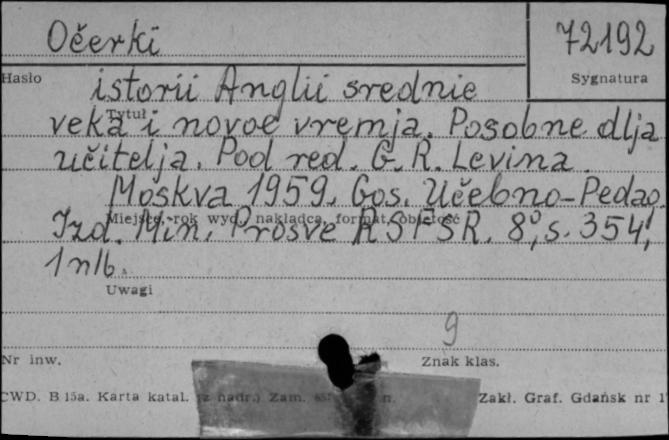 Očerki 72192
Hasło Sygnatura
istorii Anglii srednie
Tytuł
veka i novoe vremja. Posobne dlja
učitelja. Pod red. G. R. Levina.
Moskva 1959. Gos. Učebno-Pedag.
Miejsce, rok wyd., nakładca, format, objętość
Izd. Min. Prosve RSFSR. 8°, s. 354,
1 nlb.
Uwagi
9
Nr inw. Znak klas.
CWD. B 15a. Karta katal. (z nadr.) Zam. Zakł. Graf. Gdańsk nr